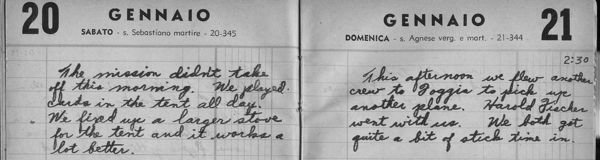 20 GENNAIO
SABATO - s. Sebastiano martire - 20-345
The mission didn't take
off this morning. We played
cards in the tent all day.
We fixed up a larger stove
for the tent and it works a
lot better.
GENNAIO 21
DOMENICA - s. Agnese verg. e mart. - 21-344
2:30
This afternoon we flew another
crew to Foggia to pick up
another plane. Harold Fischer
went with us. We both got
quite a bit of stick time in.